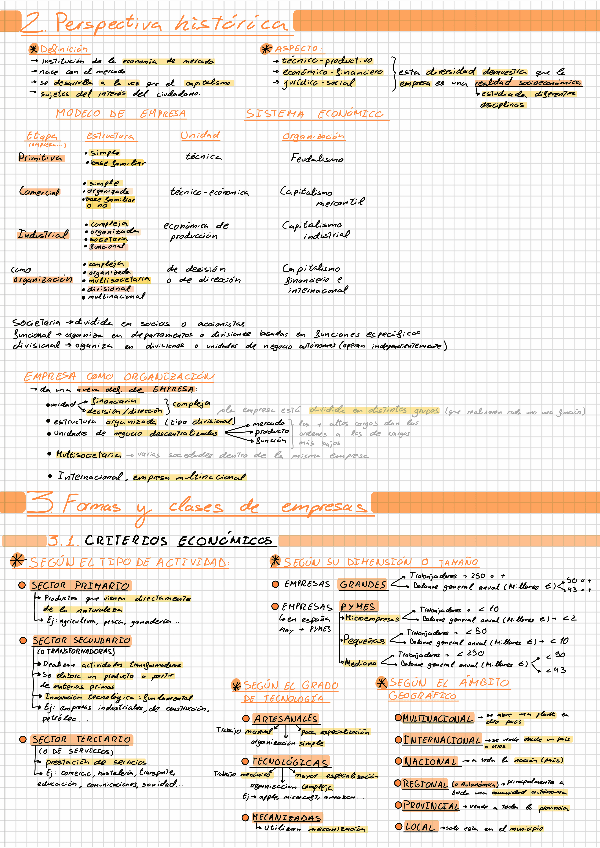 2. Perspectiva histórica
* Definición
→ institución de la economía de mercado
→ nace con el mercado
→ se desarrolla a la vez por el capitalismo
→ sujetos del interés del ciudadano.
* ASPECTO:
→ técnico-productivo
→ económico-financiero
→ jurídico-social
esta diversidad demuestra que la
empresa es una realidad socioeconómica
→ estudiada diferentes
disciplinas
MODELO DE EMPRESA
SISTEMA ECONÓMICO
Etapa
Estructura
Unidad
Organización
Primitiva
• simple
• base familiar
técnica
Feudalismo
Comercial
• simple
• organizada
• base familiar
o no
técnico-económica
Capitalismo
mercantil
Industrial
• compleja
• organizada
• societaria
• funcional
económica de
producción
Capitalismo
industrial
como
organización
• compleja
• organizada
• multisocietaria
• divisional
• multinacional
de decisión
o de dirección
Capitalismo
financiero e
internacional
Societaria → dividida en socios o accionistas
funcional → organiza en departamentos o divisiones basadas en funciones específicas
divisional → organiza en divisiones o unidades de negocio autónomas (operan independientemente)
EMPRESA COMO ORGANIZACIÓN
→ da una nueva def. de EMPRESA:
• unidad
financiera
decisión/dirección
compleja
• estructura organizada (tipo divisional)
la empresa está dividida en distintos grupos (que realizan cada uno una función)
• Unidades de negocio descentralizadas
mercado
producto
función
los + altos cargos dan las
órdenes a los de cargos
más bajos
• Multisocietaria → varias sociedades dentro de la misma empresa
• Internacional, empresa multinacional
3. Formas y clases de empresas
3.1. CRITERIOS ECONÓMICOS
* SEGÚN EL TIPO DE ACTIVIDAD:
SECTOR PRIMARIO
→ Productos que vienen directamente
de la naturaleza
→ Ej: agricultura, pesca, ganadería...
SECTOR SECUNDARIO
(O TRANSFORMADORAS)
→ Realizan actividades transformadoras
→ Se elabora un producto a partir
de materias primas
→ Innovación tecnológica: fundamental
→ Ej: empresas industriales, de construcción,
petróleo...
SECTOR TERCIARIO
(O DE SERVICIOS)
→ prestación de servicios
→ Ej: comercio, hostelería, transporte,
educación, comunicaciones, sanidad...
* SEGÚN SU DIMENSIÓN O TAMAÑO
EMPRESAS GRANDES
Trabajadores = 250 o +
Balance general anual (Millones €)
50 o +
43 o +
EMPRESAS PYMES
→ en españa
hay + PYMES
→ Microempresas
Trabajadores = < 10
Balance general anual (Millones €) = < 2
→ Pequeñas
Trabajadores = < 50
Balance general anual (Millones €) = < 10
→ Mediana
Trabajadores = < 250
Balance general anual (Millones €)
< 50
< 43
* SEGÚN EL GRADO
DE TECNOLOGÍA
ARTESANALES
Trabajo manual
poca especialización
organización simple
TECNOLÓGICAS
Trabajo mecánico
mayor especialización
organización compleja
Ej → apple, microsoft, amazon...
MECANIZADAS
→ Utilizan mecanización
* SEGÚN EL ÁMBITO
GEOGRÁFICO
MULTINACIONAL → se abre una planta en
otro país
INTERNACIONAL → se vende desde un país
a otros
NACIONAL → a toda la nación (país)
REGIONAL (o Autonómica) → principalmente a
toda una comunidad autónoma
PROVINCIAL → vende a toda la provincia
LOCAL → solo esta en el municipio